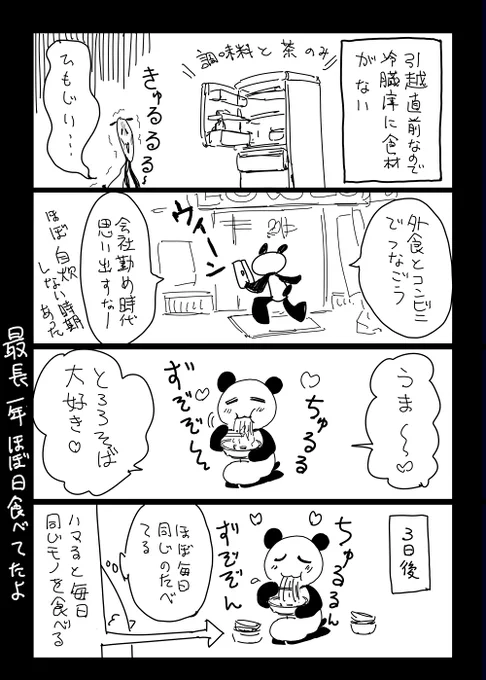 引越直前なので
冷臓庫に食材
がない
調味料と茶のみ
きゅるるる
ひもじい・・・
外食とコンビニ
でつなごう
24h
ウィーン
会社勤め時代
思い出すなー
ほぼ自炊
しない時期
あった
うま～～
ちゅるる
ずぞぞん
とろろそば
大好き♡
3日後
ちゅるるん
ずぞぞん
ほぼ毎日
同じのたべ
てる
ハマると毎日
同じモノを食べる
最長一年ほぼ日食べてたよ